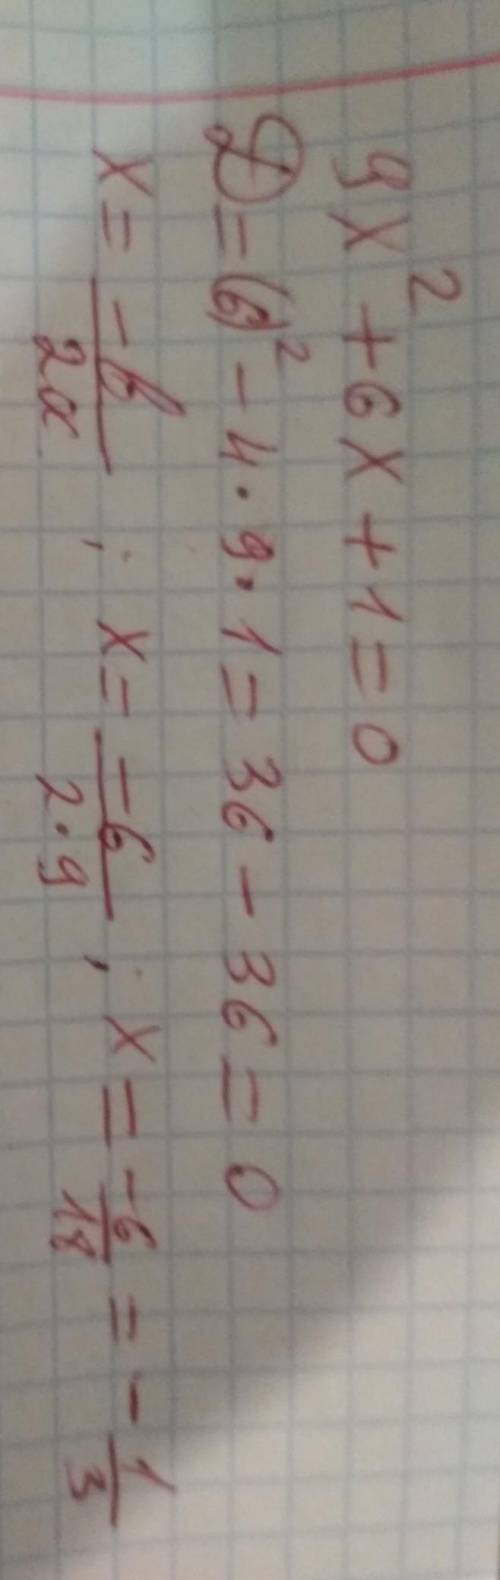 9x² + 6x + 1 = 0
D = (6)² - 4 · 9 · 1 = 36 - 36 = 0
x = -b/2a ; x = -6/2·9 ; x = -6/18 = -1/3